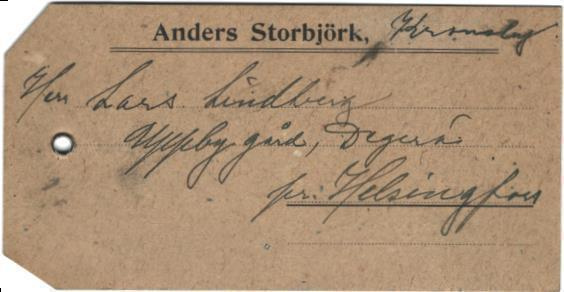 Anders Storbjörk, Kronoby
Herr Lars Lindberg
Uppby gård, Degerö
pr. Helsingfors